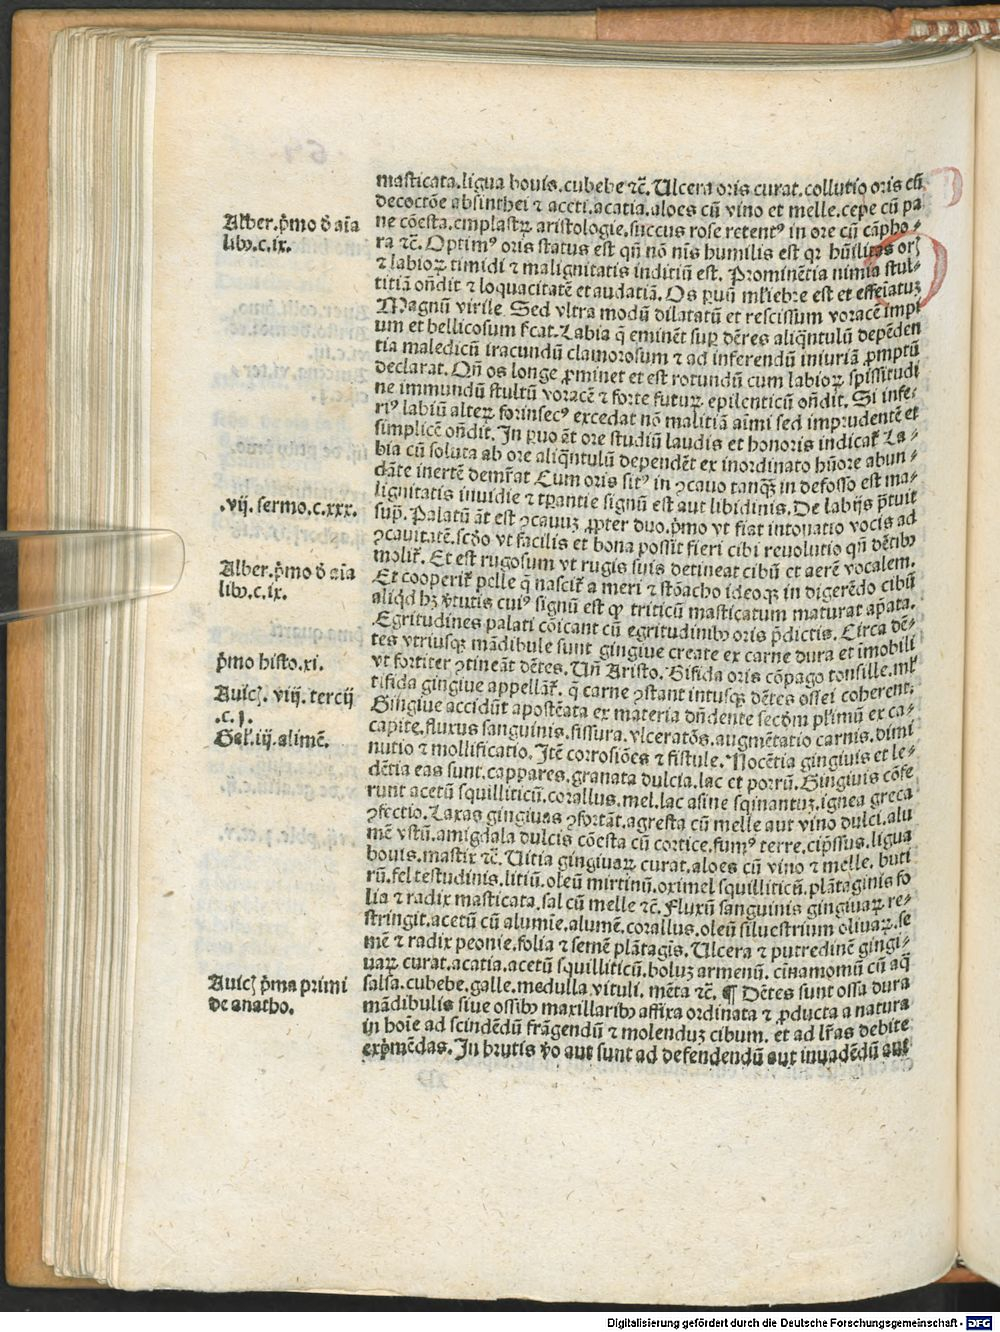 masticata.ligua bouis.cubebe ⁊c̄. Ulcera oris curat.collutio oris cū
decoctōe absinthei ⁊ aceti.acatia.aloes cū vino et melle.cepe cū pa
ne cōesta.emplastꝝ aristologie.succus rose retentꝰ in ore cū cāpho-
Alber.p̄mo ð aīa
ra ⁊c̄. Optimꝰ oris status est qn̄ nō nīs humilis est qꝛ hūilitas oꝛꝭ
lib̄.c.ix.
⁊ labioꝝ timidi ⁊ malignitatis inditiū est. Prominētia nimia stul-
titiā on̄dit ⁊ loquacitatē et audatiā. Os ꝑuū mlʼiebre est et effeīatuꝫ
Magnū virile. Sed vltra modū dilatatū et rescissum voracē impi
um et bellicosum fʼcat. Labia q̄ eminēt suꝑ dētes aliqn̄tulū depēden
tia maledicū iracundū clamorosum ⁊ ad inferendū iniuriā ꝓmptū
declarat. Qn̄ os longe ꝓminet et est rotundū cum labioꝝ spissitudi
ne immundū stultū voracē ⁊ forte futuꝝ epilenticū on̄dit. Si infe-
riꝰ labiū alteꝝ forinsecꝰ excedat nō malitiā aīmi sed imprudentē et
simplicē on̄dit. In ꝑuo āt ore studiū laudis et honoris indicatʼ La-
bia cū soluta ab ore aliqn̄tulū dependēt ex inordinato hūore abun-
dāte inertē demr̄at Cum oris sitꝰ in ꝯcauo tanqꝫ in defosso est ma-
lignitatis inuidie ⁊ tyrantie signū est aut libidinis. De labijs p̄tuit
.vij. sermo.c.xxx.
suꝑ. Palatū āt est ꝯcauuꝫ ꝓpter duo.p̄mo vt fiat intonatio vocis ad
ꝯcauitatē.scdo vt facilis et bona possit fieri cibi reuolutio qn̄ dētibꝰ
molitʼ. Et est rugosum vt rugis suis detineat cibū et aerē vocalem.
Alber.p̄mo ð aīa
Et cooperitʼ pelle q̄ nascitʼ a meri ⁊ stōacho ideoqꝫ in digerēdo cibū
lib̄.c.ix.
aliqd hꝫ v̄tutis cuiꝰ signū est ꝙ triticū masticatum maturat ap̄ata.
Egritudines palati cōicant cū egritudinibꝰ oris p̄dictis. Circa dē-
tes vtriusqꝫ mādibule sunt gingiue create ex carne dura et īmobili
p̄mo histo.xi.
vt fortiter ꝯtineāt dētes. Un̄ Aristo. Bifida oris cōpago tonsille.mlʼ
tifida gingiue appellātʼ. q̄ carne ꝯstant intusqꝫ dētes ossei coherent.
Auicꝭ. viij. tercij
.c. j.
Gingiue accidūt apostēata ex materia dn̄dente secdm plʼimū ex ca-
Gal.iij.alimē.
capite.fluxus sanguinis.fissura.vlceratōs.augmētatio carnis.dimi
nutio ⁊ mollificatio. Itē corrosiōes ⁊ fistule. Nocētia gingiuis et le-
dētia eas sunt.cappares.granata dulcia.lac et porrū. Gingiuis cōfe
runt acetū squilliticū.corallus.mel.lac asine sqinantuꝫ.ignea greca
ꝯfectio. Laxas gingiuas ꝯfortāt.agresta cū melle aut vino dulci.alu
mē vstū.amigdala dulcis cōesta cū cortice.fumꝰ terre.cip̄ssus.ligua
bouis.mastix ⁊c̄. Uitia gingiuaꝝ curat.aloes cū vino ⁊ melle. buti
rū.fel testudinis.litiū.oleū mirtinū.oximel squilliticū.plātaginis fo
lia ⁊ radix masticata.sal cū melle ⁊c̄. Fluxū sanguinis gingiuaꝝ re-
stringit.acetū cū alumīe.alumē.corallus.oleū siluestrium oliuaꝝ.se
mē ⁊ radix peonie.folia ⁊ semē plātagīs. Ulcera ⁊ putredinē gingi-
uaꝝ curat.acatia.acetū squilliticū.boluꝫ armenū.cinamomū cū aq̄
Auicꝭ p̄ma primi
salsa.cubebe.galle.medulla vituli. mēta ⁊c̄. ¶ Dētes sunt ossa dura
de anatho.
mādibulis siue ossibꝰ maxillaribꝰ affixa ordinata ⁊ ꝓducta a natura
in hoīe ad scindēdū frāgendū ⁊ molenduꝫ cibum. et ad lr̄as debite
exp̄mēdas. In brutis v̄o aut sunt ad defendendū aut inuadēdū aut
Digitalisierung gefördert durch die Deutsche Forschungsgemeinschaft - DFG